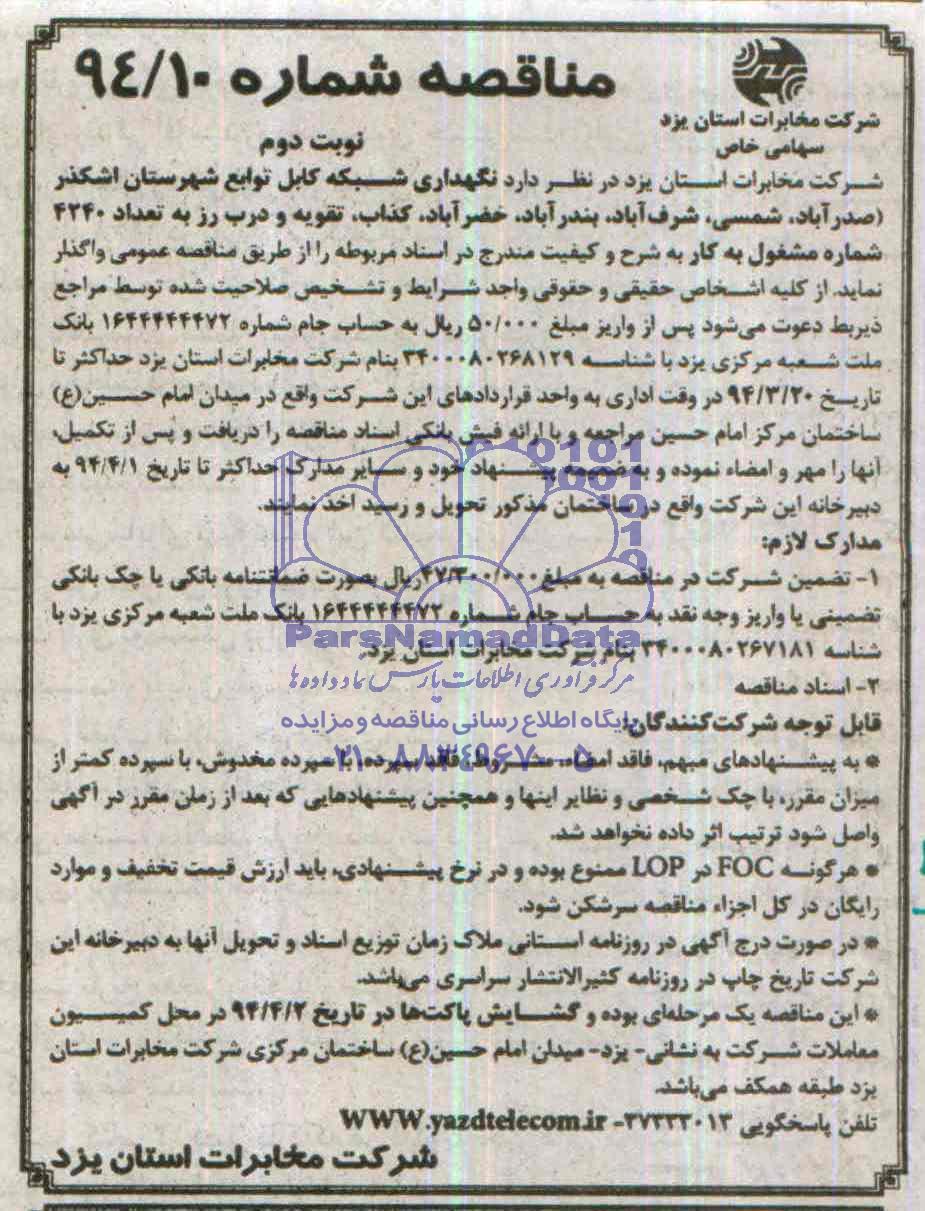 مناقصه شماره ۹٤/۱۰
شرکت مخابرات استان یزد
سهامی خاص
نوبت دوم
شرکت مخابرات استان یزد در نظر دارد نگهداری شبکه کابل توابع شهرستان اشکذر
(صدرآباد، شمسی، شرف‌آباد، بندرآباد، خضرآباد، کذاب، تقویه و درب رز به تعداد ۴۲۴۰
شماره مشغول به کار به شرح و کیفیت مندرج در اسناد مربوطه را از طریق مناقصه عمومی واگذار
نماید. از کلیه اشخاص حقیقی و حقوقی واجد شرایط و تشخیص صلاحیت شده توسط مراجع
ذیربط دعوت می‌شود پس از واریز مبلغ ۵۰/۰۰۰ ریال به حساب جام شماره ۱۶۴۴۴۴۴۴۷۲ بانک
ملت شعبه مرکزی یزد با شناسه ۳۴۰۰۰۸۰۲۶۸۱۲۹ بنام شرکت مخابرات استان یزد حداکثر تا
تاریخ ۹۴/۳/۲۰ در وقت اداری به واحد قراردادهای این شرکت واقع در میدان امام حسین(ع)
ساختمان مرکز امام حسین مراجعه و با ارائه فیش بانکی اسناد مناقصه را دریافت و پس از تکمیل،
آنها را مهر و امضاء نموده و به ضمیمه پیشنهاد خود و سایر مدارک حداکثر تا تاریخ ۹۴/۴/۱ به
دبیرخانه این شرکت واقع در ساختمان مذکور تحویل و رسید اخذ نمایند.
مدارک لازم:
۱- تضمین شرکت در مناقصه به مبلغ ۴۷/۳۰۰/۰۰۰ ریال بصورت ضمانتنامه بانکی یا چک بانکی
تضمینی یا واریز وجه نقد به حساب جام شماره ۱۶۴۴۴۴۴۴۷۲ بانک ملت شعبه مرکزی یزد با
شناسه ۳۴۰۰۰۸۰۲۶۷۱۸۱ بنام شرکت مخابرات استان یزد.
۲- اسناد مناقصه
قابل توجه شرکت‌کنندگان:
* به پیشنهادهای مبهم، فاقد امضاء، مشروط، فاقد سپرده، با سپرده مخدوش، با سپرده کمتر از
میزان مقرر، با چک شخصی و نظایر اینها و همچنین پیشنهادهایی که بعد از زمان مقرر در آگهی
واصل شود ترتیب اثر داده نخواهد شد.
* هرگونه FOC در LOP ممنوع بوده و در نرخ پیشنهادی، باید ارزش قیمت تخفیف و موارد
رایگان در کل اجزاء مناقصه سرشکن شود.
* در صورت درج آگهی در روزنامه استانی ملاک زمان توزیع اسناد و تحویل آنها به دبیرخانه این
شرکت تاریخ چاپ در روزنامه کثیرالانتشار سراسری می‌باشد.
* این مناقصه یک مرحله‌ای بوده و گشایش پاکت‌ها در تاریخ ۹۴/۴/۲ در محل کمیسیون
معاملات شرکت به نشانی- یزد- میدان امام حسین(ع) ساختمان مرکزی شرکت مخابرات استان
یزد طبقه همکف می‌باشد.
تلفن پاسخگویی ۳۷۲۳۳۰۱۳- WWW.yazdtelecom.ir
شرکت مخابرات استان یزد
ParsNamadData
مرکز فرآوری اطلاعات پارس نماد داده ها
پایگاه اطلاع رسانی مناقصه و مزایده
۰۲۱-۸۸۳٤۹٦۷۰-۵